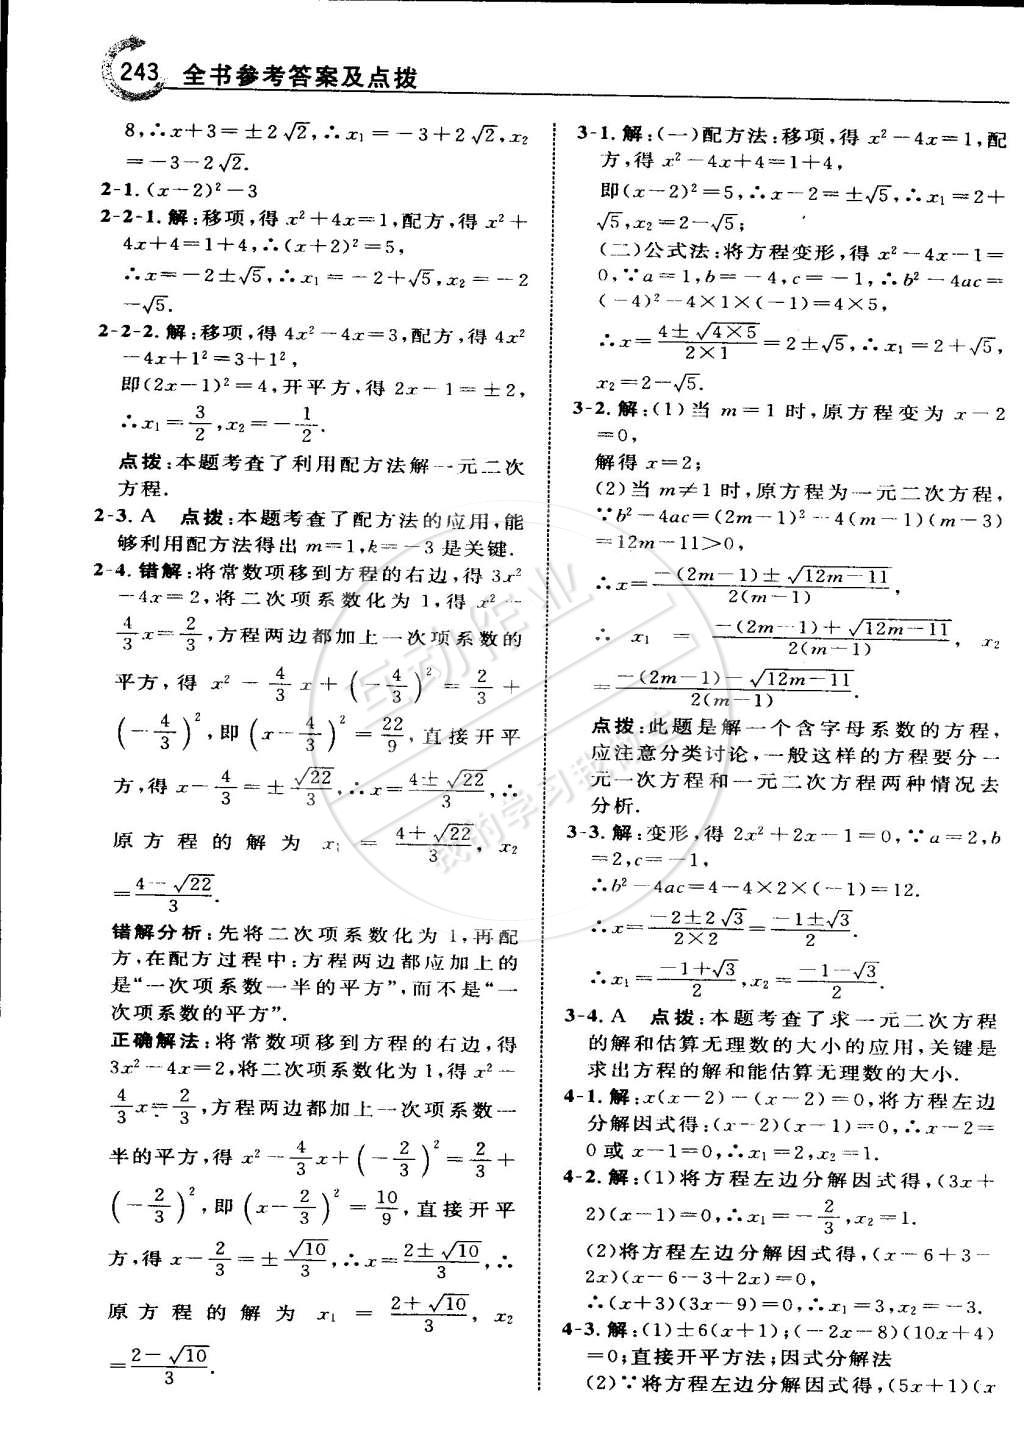 243 全书参考答案及点拨
8,∴x+3=±2√2,∴x₁=-3+2√2,x₂
=-3-2√2.
2-1.(x-2)²-3
2-2-1.解:移项,得x²+4x=1,配方,得x²+
4x+4=1+4,∴(x+2)²=5,
∴x=-2±√5,∴x₁=-2+√5,x₂=-2
-√5.
2-2-2.解:移项,得4x²-4x=3,配方,得4x²
-4x+1²=3+1²,
即(2x-1)²=4,开平方,得2x-1=±2,
∴x₁=3/2,x₂=-1/2.
点拨:本题考查了利用配方法解一元二次
方程.
2-3.A 点拨:本题考查了配方法的应用,能
够利用配方法得出m=1,k=-3是关键.
2-4.错解:将常数项移到方程的右边,得3x²
-4x=2,将二次项系数化为1,得x²-
4/3x=2/3,方程两边都加上一次项系数的
平方,得x²-4/3x+(-4/3)²=2/3+
(-4/3)²,即(x-4/3)²=22/9,直接开平
方,得x-4/3=±√22/3,∴x=(4±√22)/3,∴
原方程的解为x₁=(4+√22)/3,x₂
=(4-√22)/3.
错解分析:先将二次项系数化为1,再配
方,在配方过程中:方程两边都应加上的
是“一次项系数一半的平方”,而不是“一
次项系数的平方”.
正确解法:将常数项移到方程的右边,得
3x²-4x=2,将二次项系数化为1,得x²-
4/3x=2/3,方程两边都加上一次项系数一
半的平方,得x²-4/3x+(-2/3)²=2/3+
(-2/3)²,即(x-2/3)²=10/9,直接开平
方,得x-2/3=±√10/3,∴x=(2±√10)/3,∴
原方程的解为x₁=(2+√10)/3,x₂
=(2-√10)/3.
3-1.解:(一)配方法:移项,得x²-4x=1,配
方,得x²-4x+4=1+4,
即(x-2)²=5,∴x-2=±√5,∴x₁=2+
√5,x₂=2-√5;
(二)公式法:将方程变形,得x²-4x-1=
0,∵a=1,b=-4,c=-1,∴b²-4ac=
(-4)²-4×1×(-1)=4×5,
∴x=(4±√(4×5))/(2×1)=2±√5,∴x₁=2+√5,
x₂=2-√5.
3-2.解:(1)当m=1时,原方程变为x-2
=0,
解得x=2;
(2)当m≠1时,原方程为一元二次方程,
∵b²-4ac=(2m-1)²-4(m-1)(m-3)
=12m-11>0,
∴x=(-(2m-1)±√(12m-11))/(2(m-1)),
∴x₁=(-(2m-1)+√(12m-11))/(2(m-1)),x₂
=(-(2m-1)-√(12m-11))/(2(m-1)).
点拨:此题是解一个含字母系数的方程,
应注意分类讨论,一般这样的方程要分一
元一次方程和一元二次方程两种情况去
分析.
3-3.解:变形,得2x²+2x-1=0,∵a=2,b
=2,c=-1,
∴b²-4ac=4-4×2×(-1)=12.
∴x=(-2±2√3)/(2×2)=(-1±√3)/2.
∴x₁=(-1+√3)/2,x₂=(-1-√3)/2.
3-4.A 点拨:本题考查了求一元二次方程
的解和估算无理数的大小的应用,关键是
求出方程的解和能估算无理数的大小.
4-1.解:x(x-2)-(x-2)=0,将方程左边
分解因式得:(x-2)(x-1)=0,∴x-2=
0或x-1=0,∴x₁=2,x₂=1.
4-2.解:(1)将方程左边分解因式得,(3x+
2)(x-1)=0,∴x₁=-2/3,x₂=1.
(2)将方程左边分解因式得,(x-6+3-
2x)(x-6-3+2x)=0,
∴(x+3)(3x-9)=0,∴x₁=3,x₂=-3.
4-3.解:(1)±6(x+1);(-2x-8)(10x+4)
=0;直接开平方法;因式分解法
(2)∵将方程左边分解因式得,(5x+1)(x
互动作业